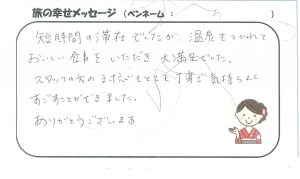 旅の幸せメッセージ (ペンネーム： )
短時間の滞在でしたが、温泉もつかれて
おいしい食事をいただき大満足でした。
スタッフの方の対応もとても丁寧で気持ちよく
すごすことができました。
ありがとうございます